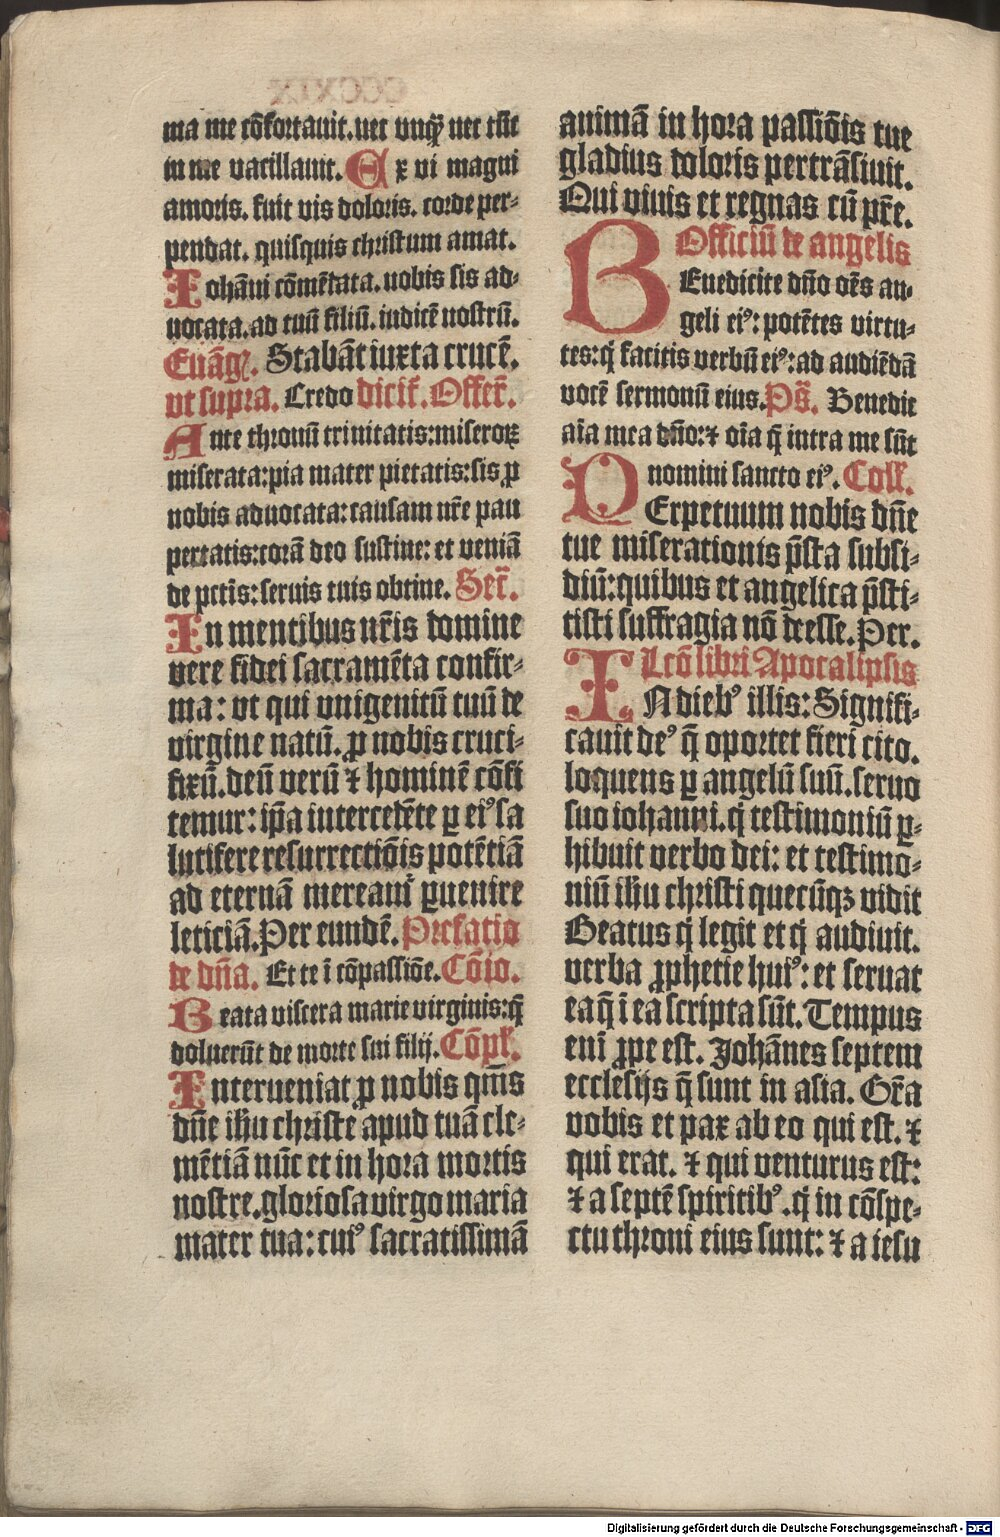 ma me cōfortauit. nec vnq̄ nec rſit
in me vacillauit. Ex vi magni
amoris. fuit vis doloris. corde per⸗
pendat. quiſquis chriſtum amat.
Johāni cōmēdata. nobis ſis ad⸗
uocata. ad tuū filiū. iudicē noſtrū.
Euāgꝭ. Stabāt iuxta crucē.
vt ſupra. Credo dicit̄. Offer̄.
Ante thronū trinitatis: miſeroꝝ
miſerata: pia mater pietatis: ſis ꝓ
nobis aduocata: cauſam nr̄e pau
pertatis: corā deo ſuſtine: et veniā
de pctīs: ſeruis tuis obtine. Secr̄.
In mentibus nr̄is domine
vere fidei ſacramēta confir⸗
ma: vt qui vnigenitū tuū de
virgine natū. ꝓ nobis cruci⸗
fixū. deū verū ⁊ hominē cōfi
temur: ip̄a intercedēte ꝑ eiꝰ ſa
lutifere reſurrectiōis potētiā
ad eternā mereamʳ ꝑuenire
leticiā. Per eundē. Prefatio
de dn̄a. Et te ī cōpaſſiōe. Cōio.
Beata viſcera marie virginis: q̄
doluerūt de morte ſui filij. Cōpl̄.
Interueniat ꝓ nobis qm̄s
dn̄e ihū chriſte apud tuā cle⸗
mētiā nūc et in hora mortis
noſtre. glorioſa virgo maria
mater tua: cuiꝰ ſacratiſſimā
animā in hora paſſiōis tue
gladius doloris pertrāſiuit.
Qui viuis et regnas cū pr̄e.
Officiū de angelis
Benedicite dn̄o oēs an⸗
geli eiꝰ: potētes virtu⸗
tes: qͥ facitis verbū eiꝰ: ad audiēdā
vocē ſermonū eius. Ps̄. Benedic
aīa mea dn̄o: ⁊ oīa q̄ intra me ſūt
nomini ſancto eiꝰ. Coll̄.
Perpetuum nobis dn̄e
tue miſerationis p̄ſta ſubſi⸗
diū: quibus et angelica p̄ſti⸗
tiſti ſuffragia nō deeſſe. Per.
Lcō libri Apocalipſis
In diebꝰ illis: Signifi⸗
cauit deꝰ q̄ oportet fieri cito.
loquens ꝑ angelū ſuū. ſeruo
ſuo iohanni. qͥ teſtimoniū ꝑ⸗
hibuit verbo dei: et teſtimo⸗
niū ihū chriſti quecūqꝫ vidit
Beatus qͥ legit et qͥ audiuit.
verba ꝓphetie huiꝰ: et ſeruat
ea q̄ ī ea ſcripta ſūt. Tempus
enī ꝓpe eſt. Johānes ſeptem
eccleſijs q̄ ſunt in aſia. Gr̄a
vobis et pax ab eo qui eſt. ⁊
qui erat. ⁊ qui venturus eſt:
⁊ a ſeptē ſpiritibꝰ. qͥ in cōſpe⸗
ctu throni eius ſunt: ⁊ a ieſu
Digitalisierung gefördert durch die Deutsche Forschungsgemeinschaft - DFG